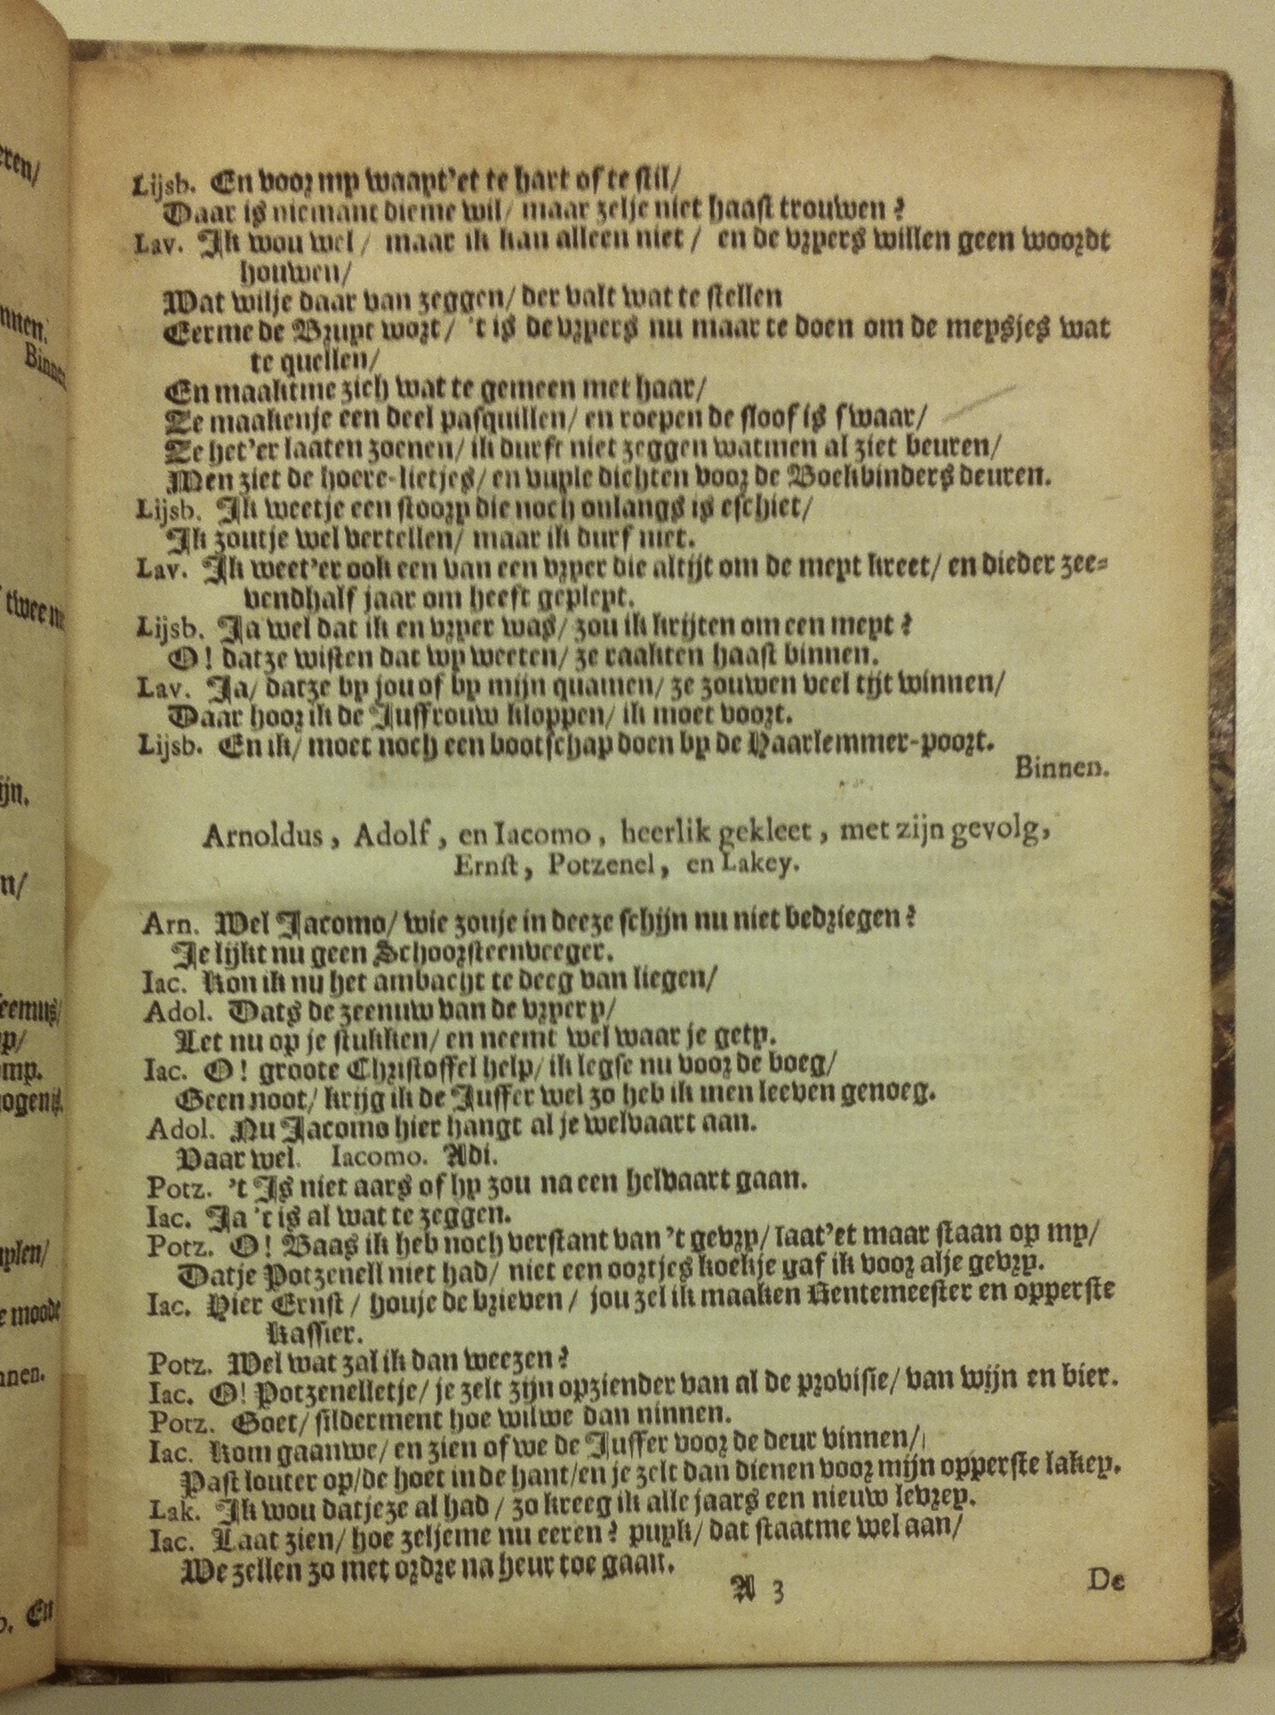 Lijsb. En voor my waayt'et te hart of te stil/
Daar is niemant die me wil/ maar zelje niet haast trouwen?
Lav. Ik wou wel/ maar ik kan alleen niet/ en de vryers willen geen woordt
houwen/
Wat wilje daar van zeggen/ der valt wat te stellen
Eerme de Bruyt wort/ 't is de vryers nu maar te doen om de meysjes wat
te quellen/
En maaktme zich wat te gemeen met haar/
Ze maakenje een deel pasquillen/ en roepen de sloof is swaar/
Ze het'er laaten zoenen/ ik durft niet zeggen watmen al ziet beuren/
Men ziet de hoere-lietjes/ en vuyle dichten voor de Boekbinders deuren.
Lijsb. Ik weetje een stoory die noch onlangs is eschiet/
Ik zoutje wel vertellen/ maar ik durf niet.
Lav. Ik weet'er ook een van een vryer die altijt om de meyt kreet/ en dieder zee-
vendhalf jaar om heeft gepleyt.
Lijsb. Ja wel dat ik en vryer was/ zou ik krijten om een meyt?
O! datze wisten dat wy weeten/ ze raakten haast binnen.
Lav. Ja/ datze by jou of by mijn quamen/ ze zouwen veel tijt winnen/
Daar hoor ik de Juffrouw kloppen/ ik moet voort.
Lijsb. En ik/ moet noch een bootschap doen by de Haarlemmer-poort.
Binnen.
Arnoldus, Adolf, en Iacomo, heerlik gekleet, met zijn gevolg,
Ernst, Potzenel, en Lakey.
Arn. Wel Jacomo/ wie zouje in deeze schijn nu niet bedriegen?
Je lijkt nu geen Schoorsteenveeger.
Iac. Kon ik nu het ambacht te deeg van liegen/
Adol. Dats de zeenuw van de vryery/
Let nu op je stukken/ en neemt wel waar je gety.
Iac. O! groote Christoffel help/ ik legse nu voor de boeg/
Geen noot/ krijg ik de Juffer wel zo heb ik men leeven genoeg.
Adol. Nu Jacomo hier hangt al je welvaart aan.
Vaar wel. Iacomo. Adi.
Potz. 't Is niet aars of hy zou na een helvaart gaan.
Iac. Ja 't is al wat te zeggen.
Potz. O! Baas ik heb noch verstant van 't gevry/ laat'et maar staan op my/
Datje Potzenell niet had/ niet een oortjes koekje gaf ik voor alje gevry.
Iac. Hier Ernst/ houje de brieven/ jou zel ik maaken Rentemeester en opperste
Kassier.
Potz. Wel wat zal ik dan weezen?
Iac. O! Potzenelletje/ je zelt zijn opziender van al de provisie/ van wijn en bier.
Potz. Goet/ silderment hoe wilwe dan ninnen.
Iac. Kom gaanwe/ en zien of we de Juffer voor de deur vinnen/
Past louter op/ de hoet in de hant/ en je zelt dan dienen voor mijn opperste lakey.
Lak. Ik wou datjeze al had/ zo kreeg ik alle jaars een nieuw levrey.
Iac. Laat zien/ hoe zeljeme nu eeren? puyk/ dat staatme wel aan/
We zellen zo met ordre na heur toe gaan.
A 3
De